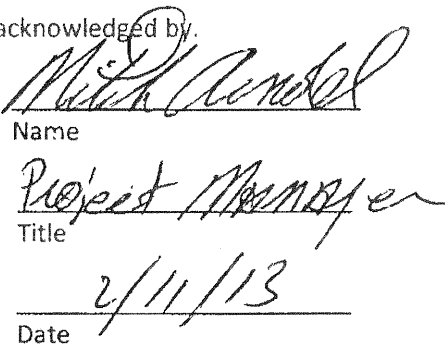 acknowledged by.
Mitch
Name
Project Manager
Title
2/11/13
Date